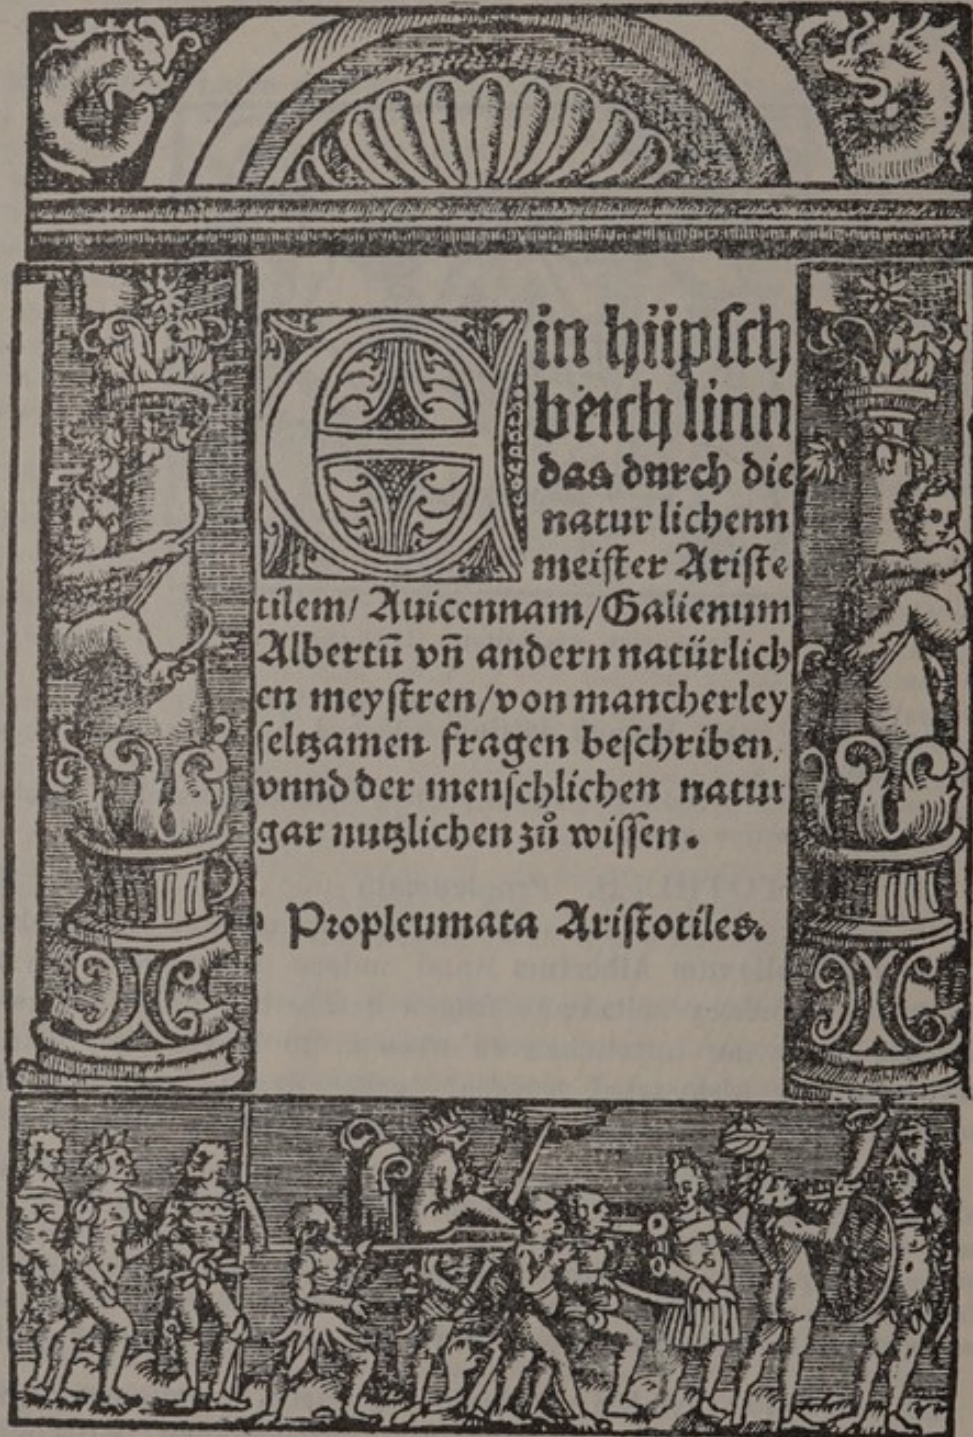 Ein hüpsch
beich linn
das durch die
natur lichenn
meister Ariste
tilem/ Auicennam/Galienum
Albertū vn̄ andern natürlich
en meystren/von mancherley
seltzamen fragen beschriben,
vnnd der menschlichen natur
gar nutzlichen zů wissen.
Propleumata Aristotiles.